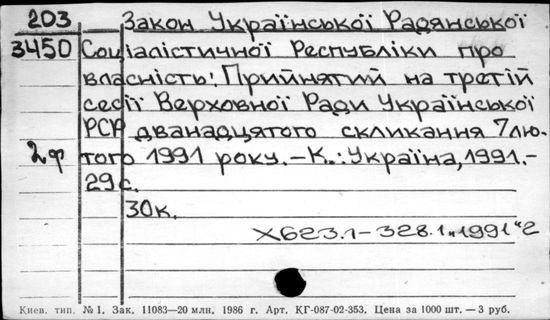 203 Закон Української Радянської
3450 Соціалістичної Республіки про
власність: Прийнятий на третій
сесії Верховної Ради Української
РСР дванадцятого скликання 7 лю-
2ф того 1991 року.–К.: Україна, 1991.–
29 с.
30к.
Х623.1–328.1"1991"2
Киев. тип. № 1. Зак. 11083—20 млн. 1986 г. Арт. КГ-087-02-353. Цена за 1000 шт. — 3 руб.